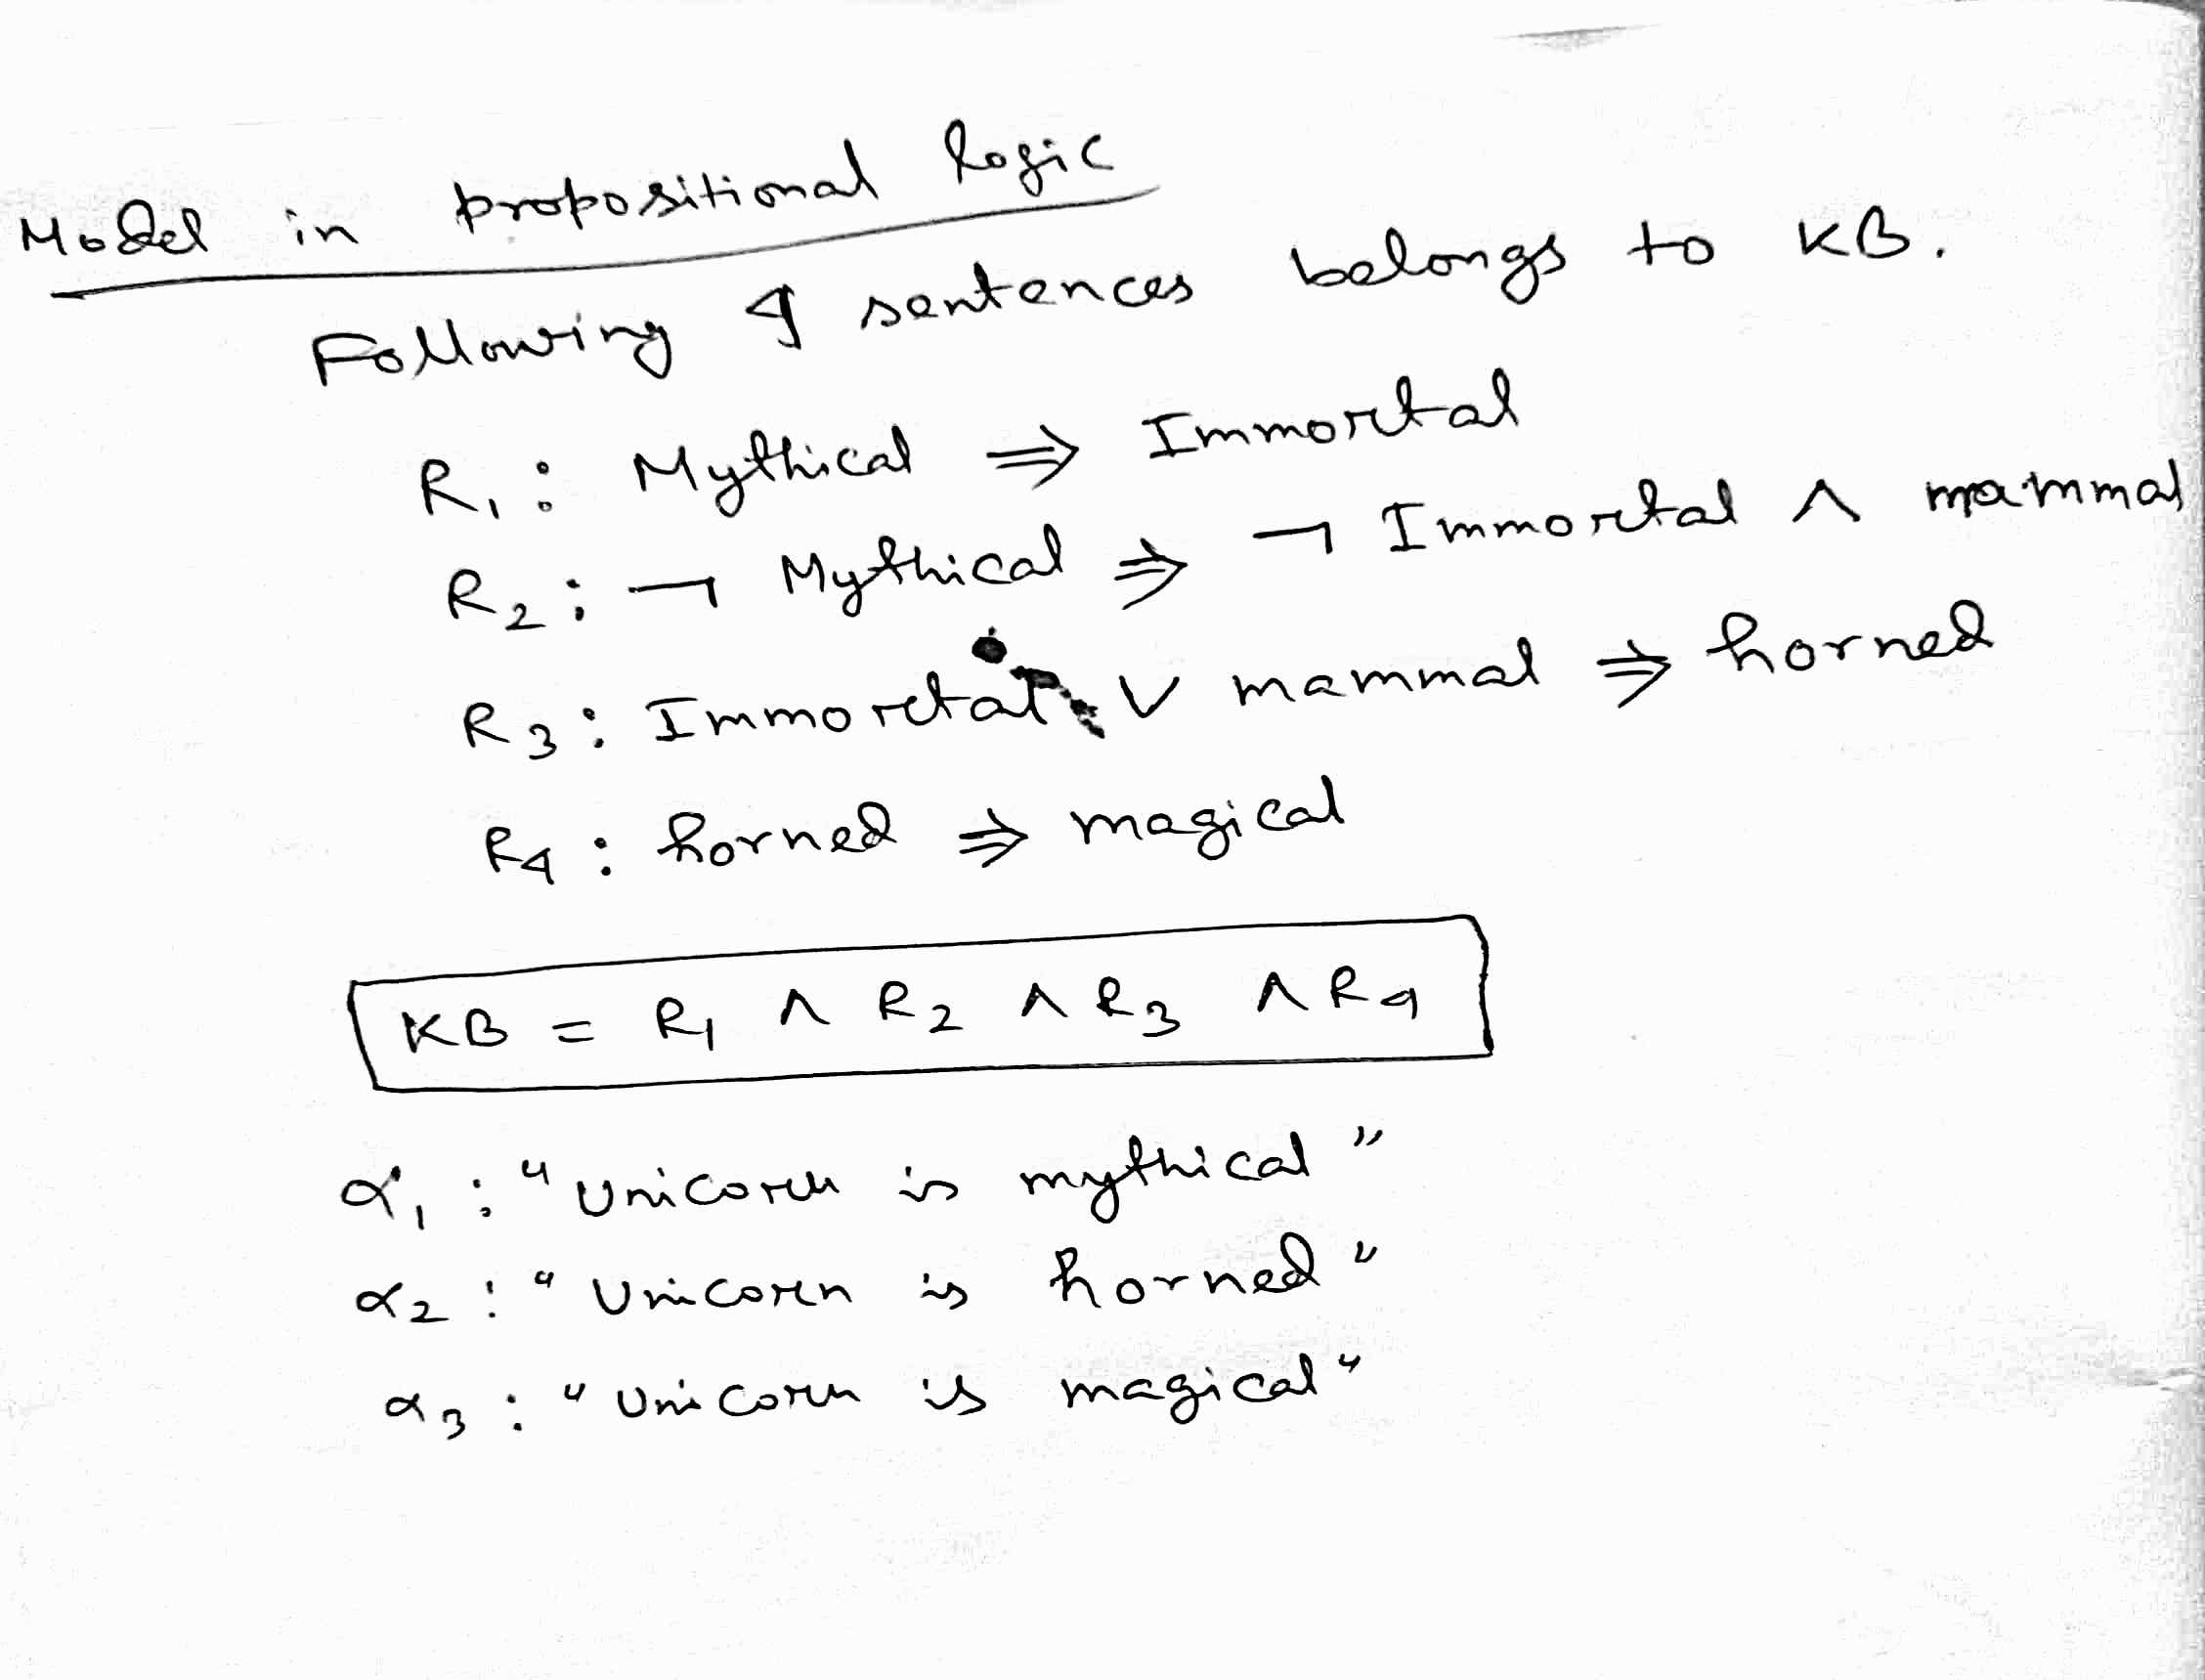 Model in propositional logic
Following 4 sentences belongs to KB.
R₁ : Mythical ⇒ Immortal
R₂ : ¬ Mythical ⇒ ¬ Immortal ∧ mammal
R₃ : Immortal ∨ mammal ⇒ horned
R₄ : horned ⇒ magical
KB = R₁ ∧ R₂ ∧ R₃ ∧ R₄
α₁ : "Unicorn is mythical"
α₂ : "Unicorn is horned"
α₃ : "Unicorn is magical"